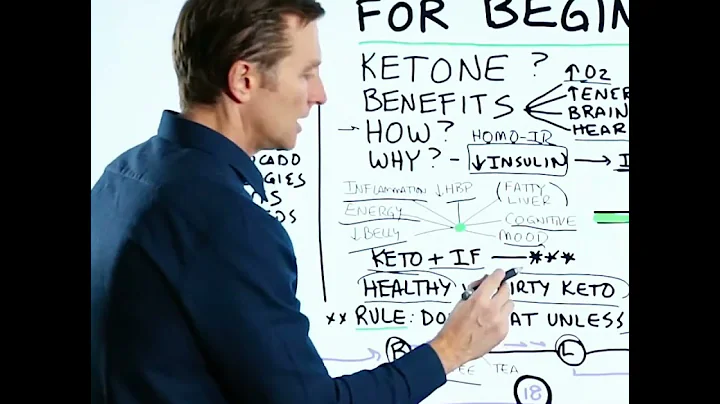 FOR BEGIN
KETONE ?
↑O2
BENEFITS
↑TENER
BRAIN
HEAR
→ HOW? HOMO-IR
WHY? - ↓INSULIN → I
CADO
GIES
NS
DS
INFLAMMATION ↓HBP (FATTY LIVER)
ENERGY COGNITIVE
↓BELLY MOOD
KETO + IF — ***
HEALTHY IRTY KETO
** RULE: DO AT UNLESS
B L
EE TEA
18